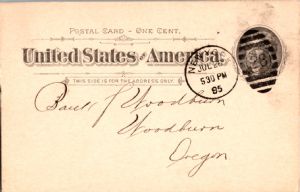 POSTAL CARD – ONE CENT.
United States of America.
THIS SIDE IS FOR THE ADDRESS ONLY.
JUL 26
530 PM
95
Bank of Woodburn
Woodburn
Oregon